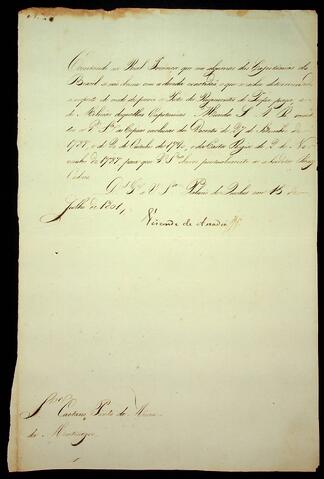 Constando na Real Presença que em algumas das Capitanias do
Brazil se não observa com a devida exactidão o que se acha determinado
a respeito do modo de passar os Postos dos Regimentos de Tropa paga, e
de Milicias daquellas Capitanias: Manda S. A. R. remetter
a V. S.ª as Copias inclusas do Decreto de 27 de Setembro de
1787, e de 2 de Outubro de 17, e da Carta Regia de 2 de No
vembro de 1787 para que V. S.ª observe pontualmente as
Ordens
D.s G.e a V. S.ª Palacio de Queluz em 15 de
Julho de 1801,
Visconde de Anadia
S.r Caetano Pinto de Miranda
de Montenegro